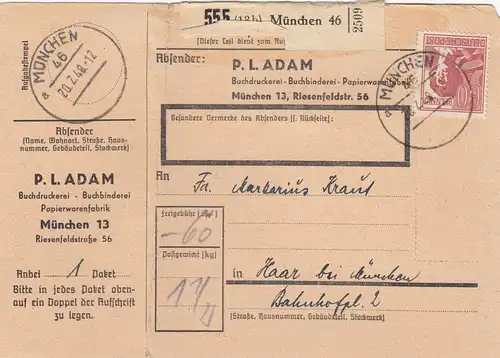 555 (13b) München 46
2509
(Dieser Teil dient zum Auf
Aufgabestempel
MÜNCHEN
46
20.7.48.-12
a
Absender
(Name, Wohnort, Straße, Haus-
nummer, Gebäudeteil, Stockwerk)
P. L. ADAM
Buchdruckerei - Buchbinderei
Papierwarenfabrik
München 13
Riesenfeldstraße 56
Anbei 1 Paket
Bitte in jedes Paket oben-
auf ein Doppel der Aufschrift
zu legen.
Absender:
P. L. ADAM
Buchdruckerei - Buchbinderei - Papierwarenfabrik
München 13, Riesenfeldstr. 56
DEUTSCHE POST
MÜNCHEN
46
a
60
Besondere Vermerke des Absenders (s. Rückseite):
An Fa. Markarius Kraut
Freigebühr (ℛℳ)
-60
Postgewicht (kg)
in Haar bei München
Bahnhofpl. 2
(Straße, Hausnummer, Gebäudeteil, Stockwerk)